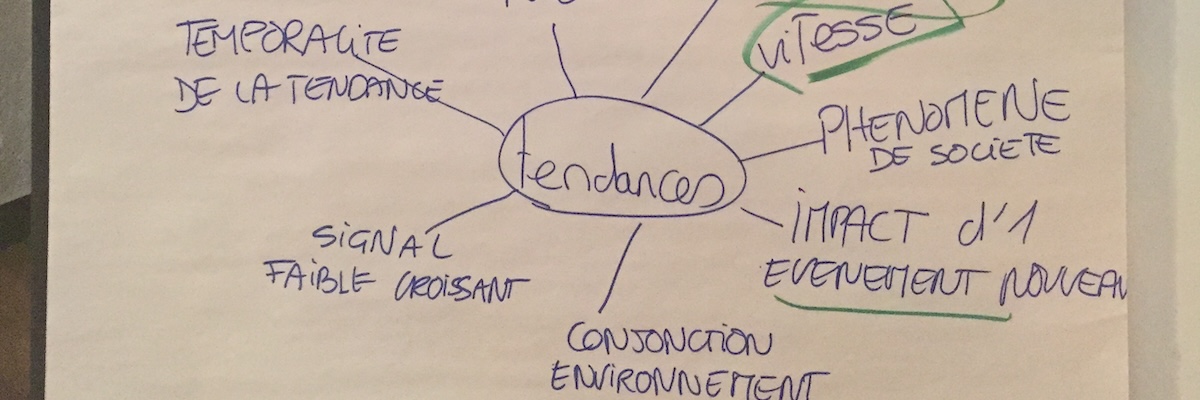 TEMPORALITE
DE LA TENDANCE
VITESSE
PHENOMENE
DE SOCIETE
tendances
IMPACT d'1
EVENEMENT NOUVEAU
SIGNAL
FAIBLE CROISSANT
CONJONCTION
ENVIRONNEMENT